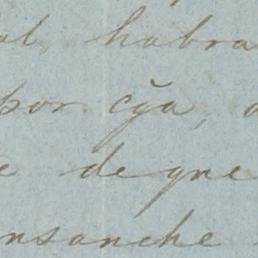 al habra
por cg̃a,
e degne
nsanche